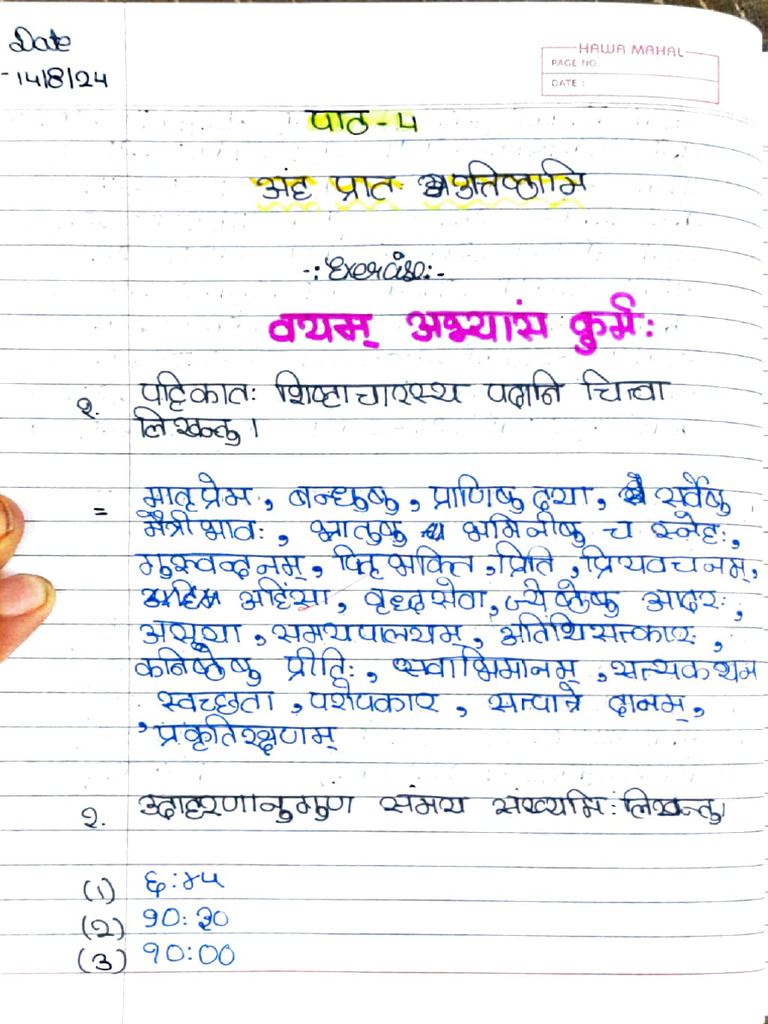 Date
-14/8/24
HAWA MAHAL
PAGE NO.
DATE :
पाठ - ५
अंह प्रातः उत्तिष्ठामि
-: Exercise:-
वयम् अभ्यासं कुर्मः
१. पट्टिकातः शिष्टाचारस्य पदानि चित्वा
लिखन्तु।
= मातृप्रेम, बन्धुषु, प्राणिषु दया, सर्वेषु
मैत्रीभावः, भ्रातृषु भगिनीषु च स्नेहः,
गुरुवन्दनम्, पितृभक्ति, प्रिति, प्रियवचनम्,
अहिंसा, वृध्दसेवा, ज्येष्ठेषु आदरः,
असूया, समयपालयम्, अतिथिसत्कारः,
कनिष्ठेषु प्रीतिः, स्वाभिमानम्, सत्यकथम
स्वच्छता, परोपकार, सत्पात्रे दानम्,
, प्रकृतिरक्षणम्
२. उदाहरणानुगुण संमय संख्यमिः लिखन्तु।
(1) ६:४५
(2) १०:३०
(3) १०:००